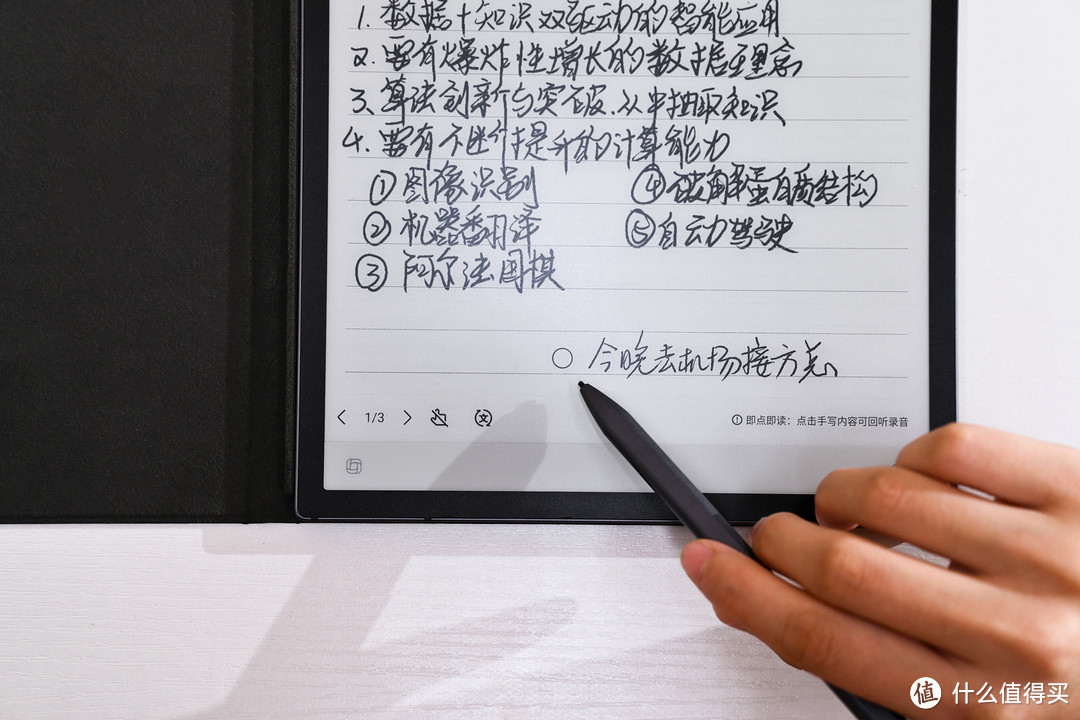 1. 数据+知识双驱动的智能应用
2. 要有爆炸性增长的数据
3、算法创新与突破、从中抽取知识
4. 要有不断提升的计算能力
①图像识别 ④破解蛋白质结构
②机器翻译 ⑤自动驾驶
③阿尔法围棋
○ 今晚去机场接方总
1/3
即点即读：点击手写内容可回听录音
值 什么值得买